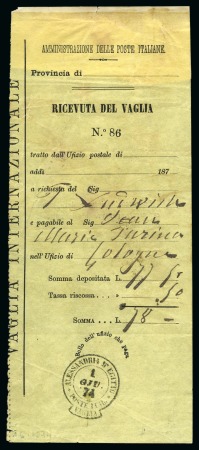 AMMINISTRAZIONE DELLE POSTE ITALIANE
Provincia di
RICEVUTA DEL VAGLIA
N.º 86
tratto dall'Ufizio postale di
addì 187
a richiesta del Sig Ludwich
e pagabile al Sig Jean
Maria Farina
nell'Ufizio di Cologne
Somma depositata L. 77 50
Tassa riscossa 50
SOMMA L. 78 -
Bollo dell'ufizio che paga
ALESSANDRIA D'EGITTO
1
GIU.
74
POSTE ITAL.
VAGLIA INTERNAZIONALE